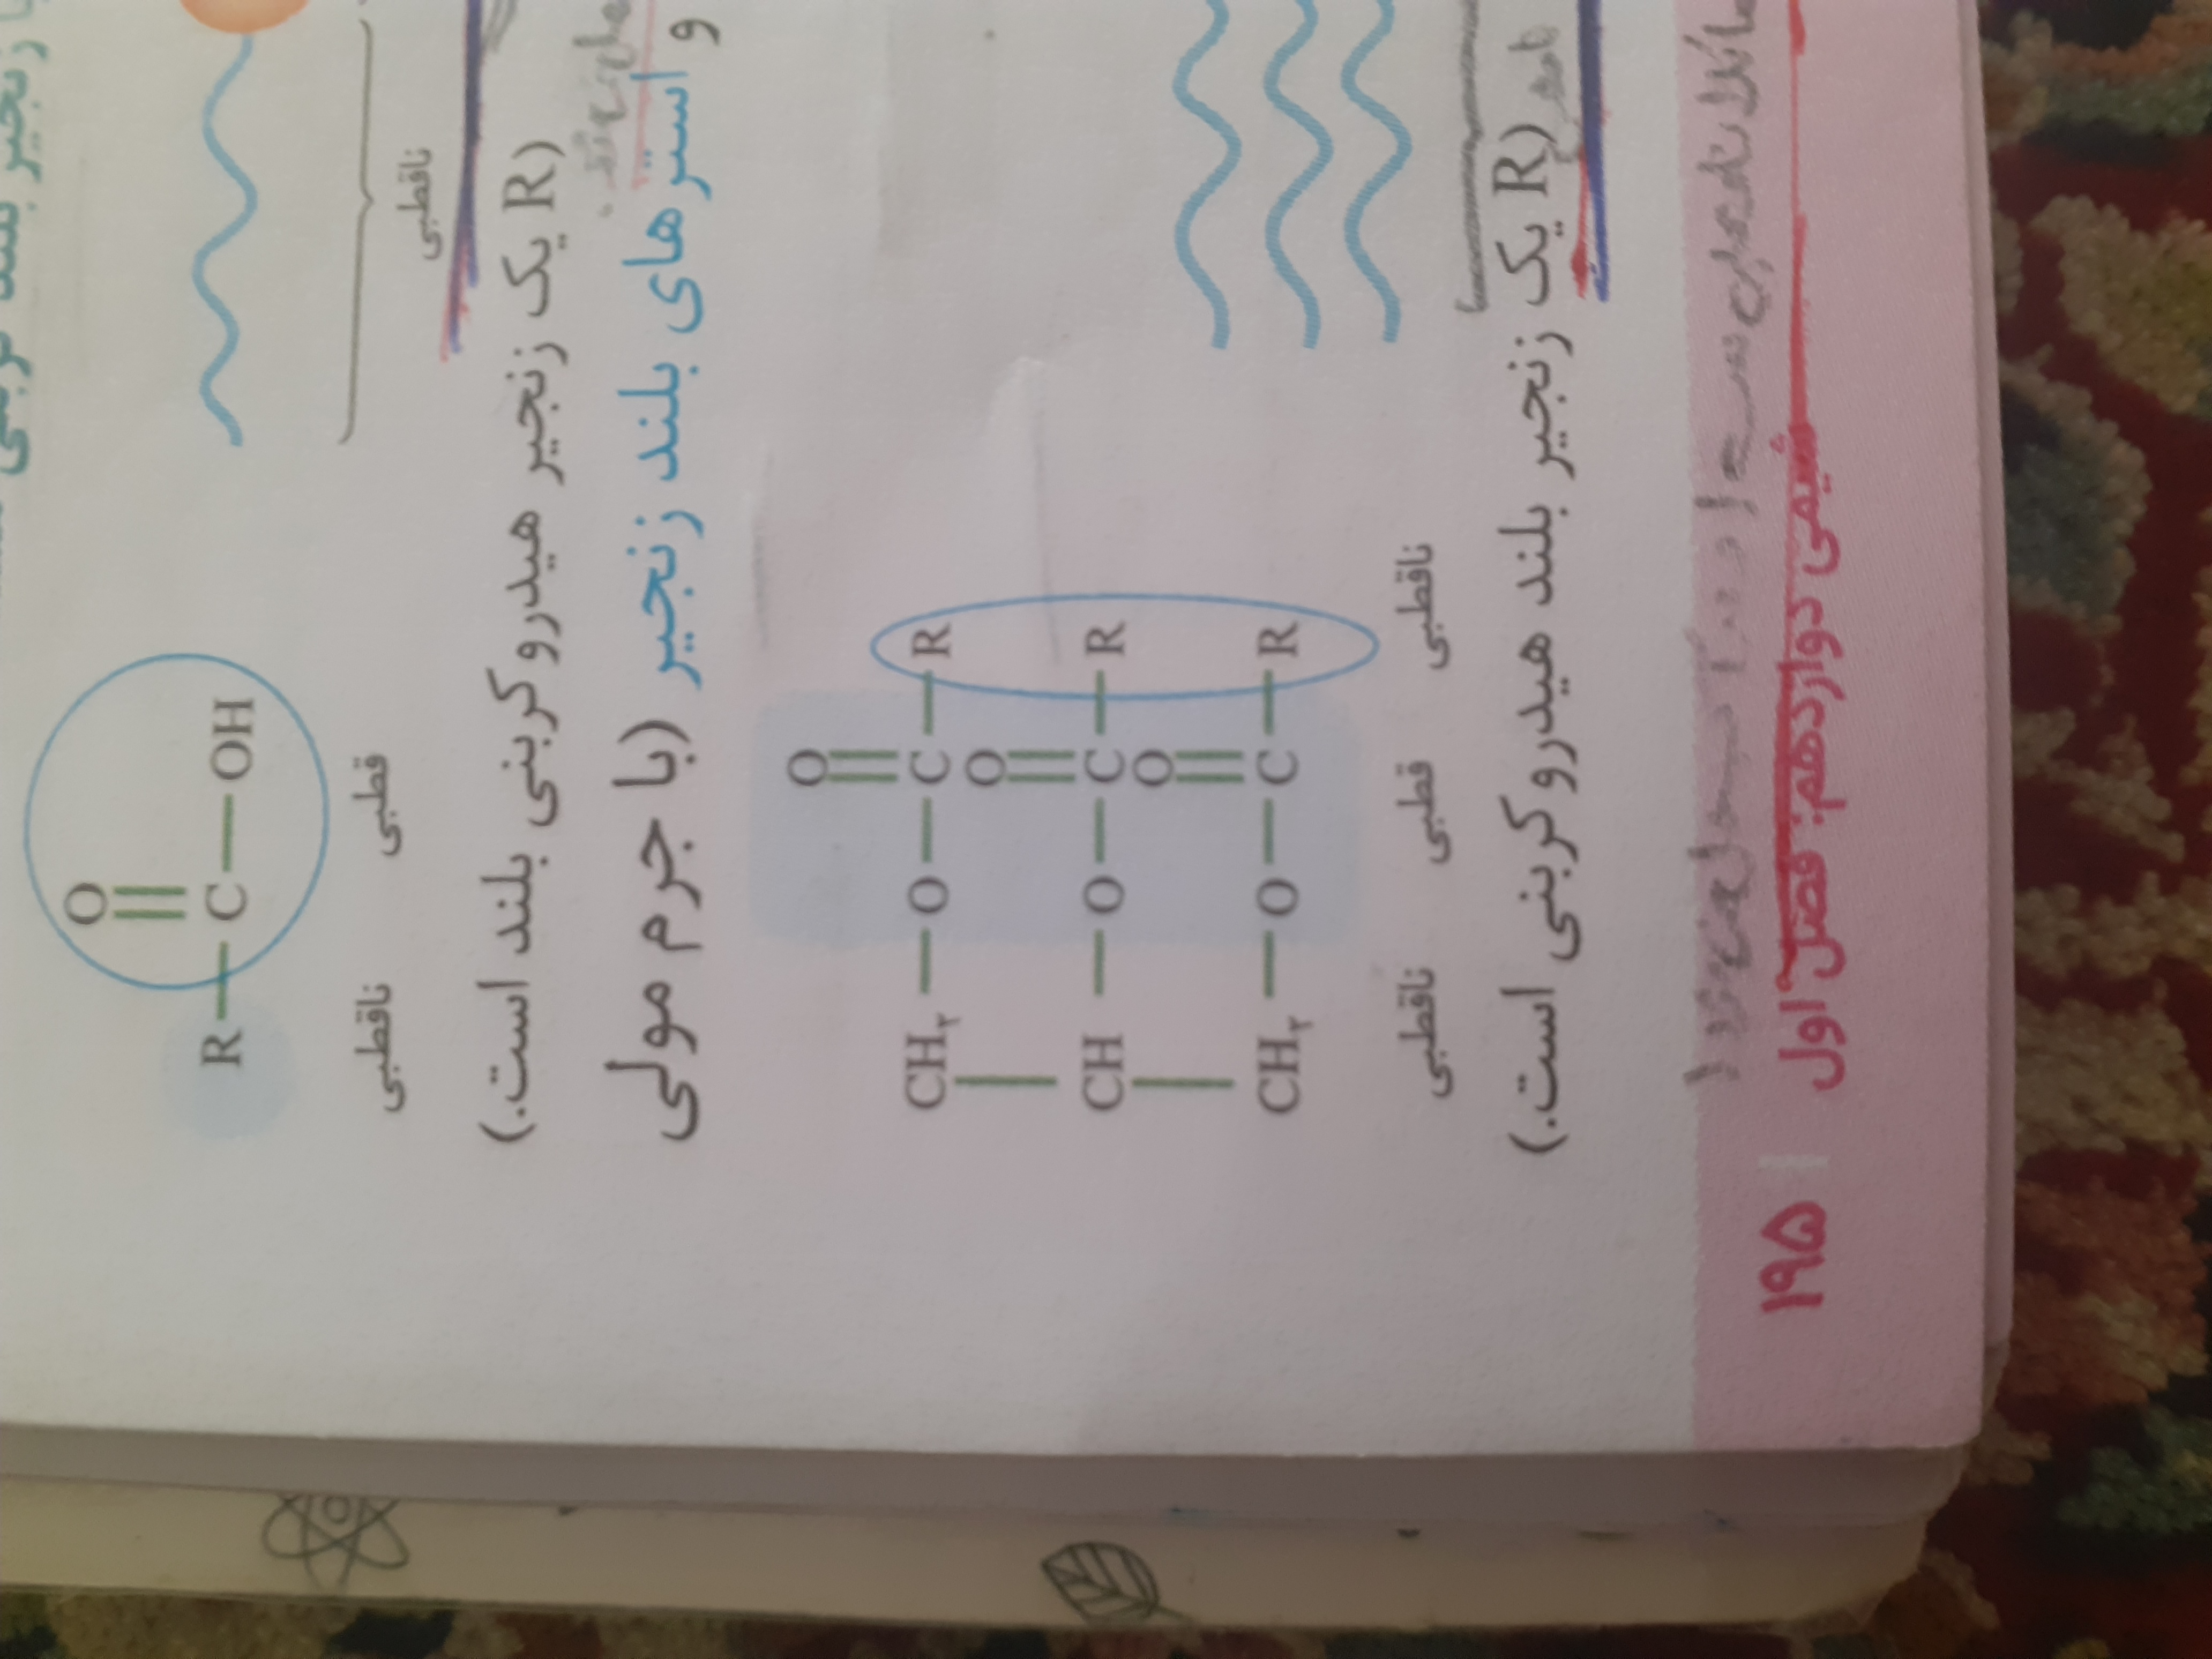 O
R — C — OH
ناقطبی قطبی
ناقطبی
(R یک زنجیر هیدروکربنی بلند است.)
و استرهای بلند زنجیر (با جرم مولی
O
CH۲ — O — C — R
O
CH — O — C — R
O
CH۲ — O — C — R
ناقطبی قطبی ناقطبی
(R یک زنجیر بلند هیدروکربنی است.)
شیمی دوازدهم: فصل اول | ۱۹۵